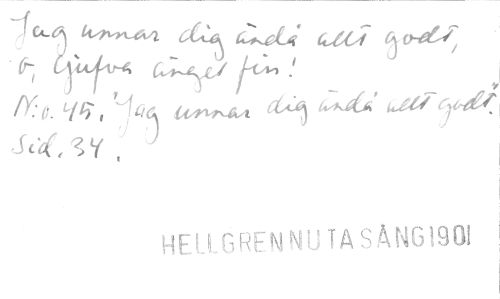 Jag unnar dig ändå allt godt,
o, ljufva änget fin!
N:o. 45. "Jag unnar dig ändå allt godt".
Sid. 34.
HELLGREN NUTA SÅNG 1901